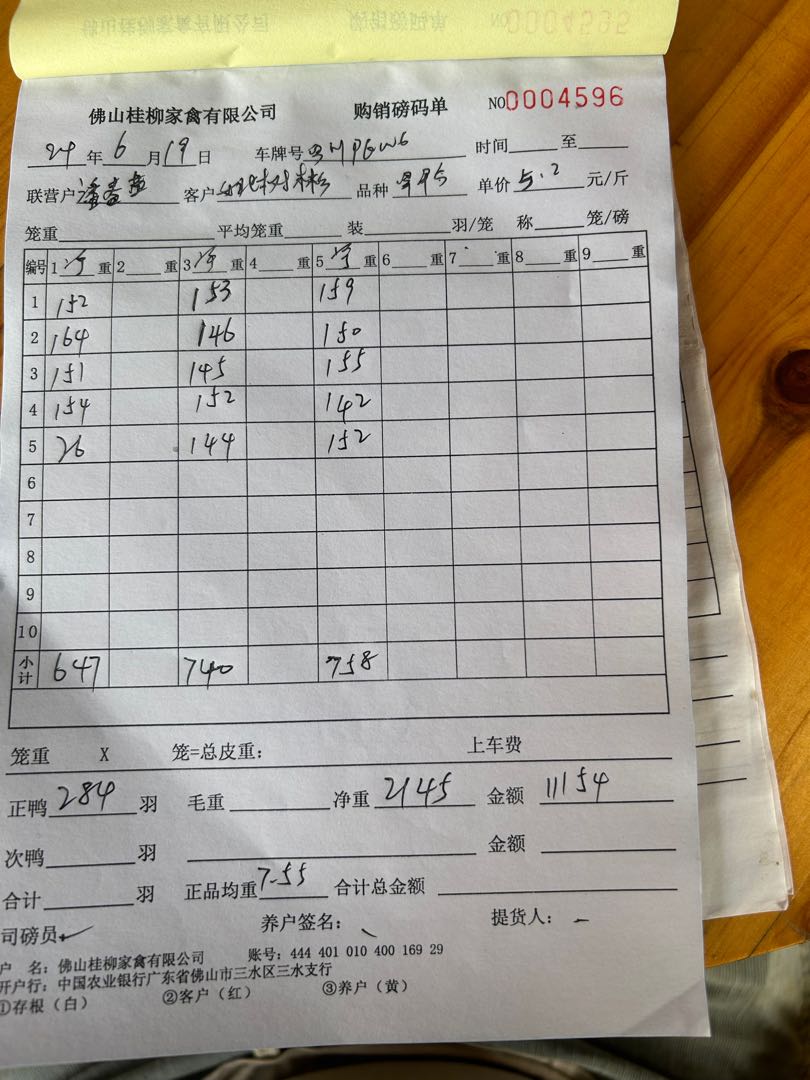 佛山桂柳家禽有限公司 购销磅码单 NO0004596
24年6月19日 车牌号 时间 至
联营户 客户 品种 单价5.2元/斤
笼重 平均笼重 装 羽/笼 称 笼/磅
编号 1 净 重 2 重 3 净 重 4 重 5 净 重 6 重 7 重 8 重 9 重
1 152 153 159
2 164 146 150
3 151 145 155
4 154 152 142
5 26 144 152
6
7
8
9
10
小计 647 740 758
笼重 X 笼=总皮重: 上车费
正鸭284羽 毛重 净重2145 金额11154
次鸭 羽 金额
合计 羽 正品均重7.55 合计总金额
司磅员 养户签名: 提货人:
户 名: 佛山桂柳家禽有限公司 账号: 444 401 010 400 169 29
开户行: 中国农业银行广东省佛山市三水区三水支行
①存根(白) ②客户(红) ③养户(黄)